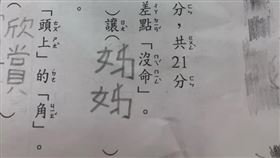 分，共21分
差點「沒命」。
讓
姊姊
。
「頭上」的「角」。
欣賞